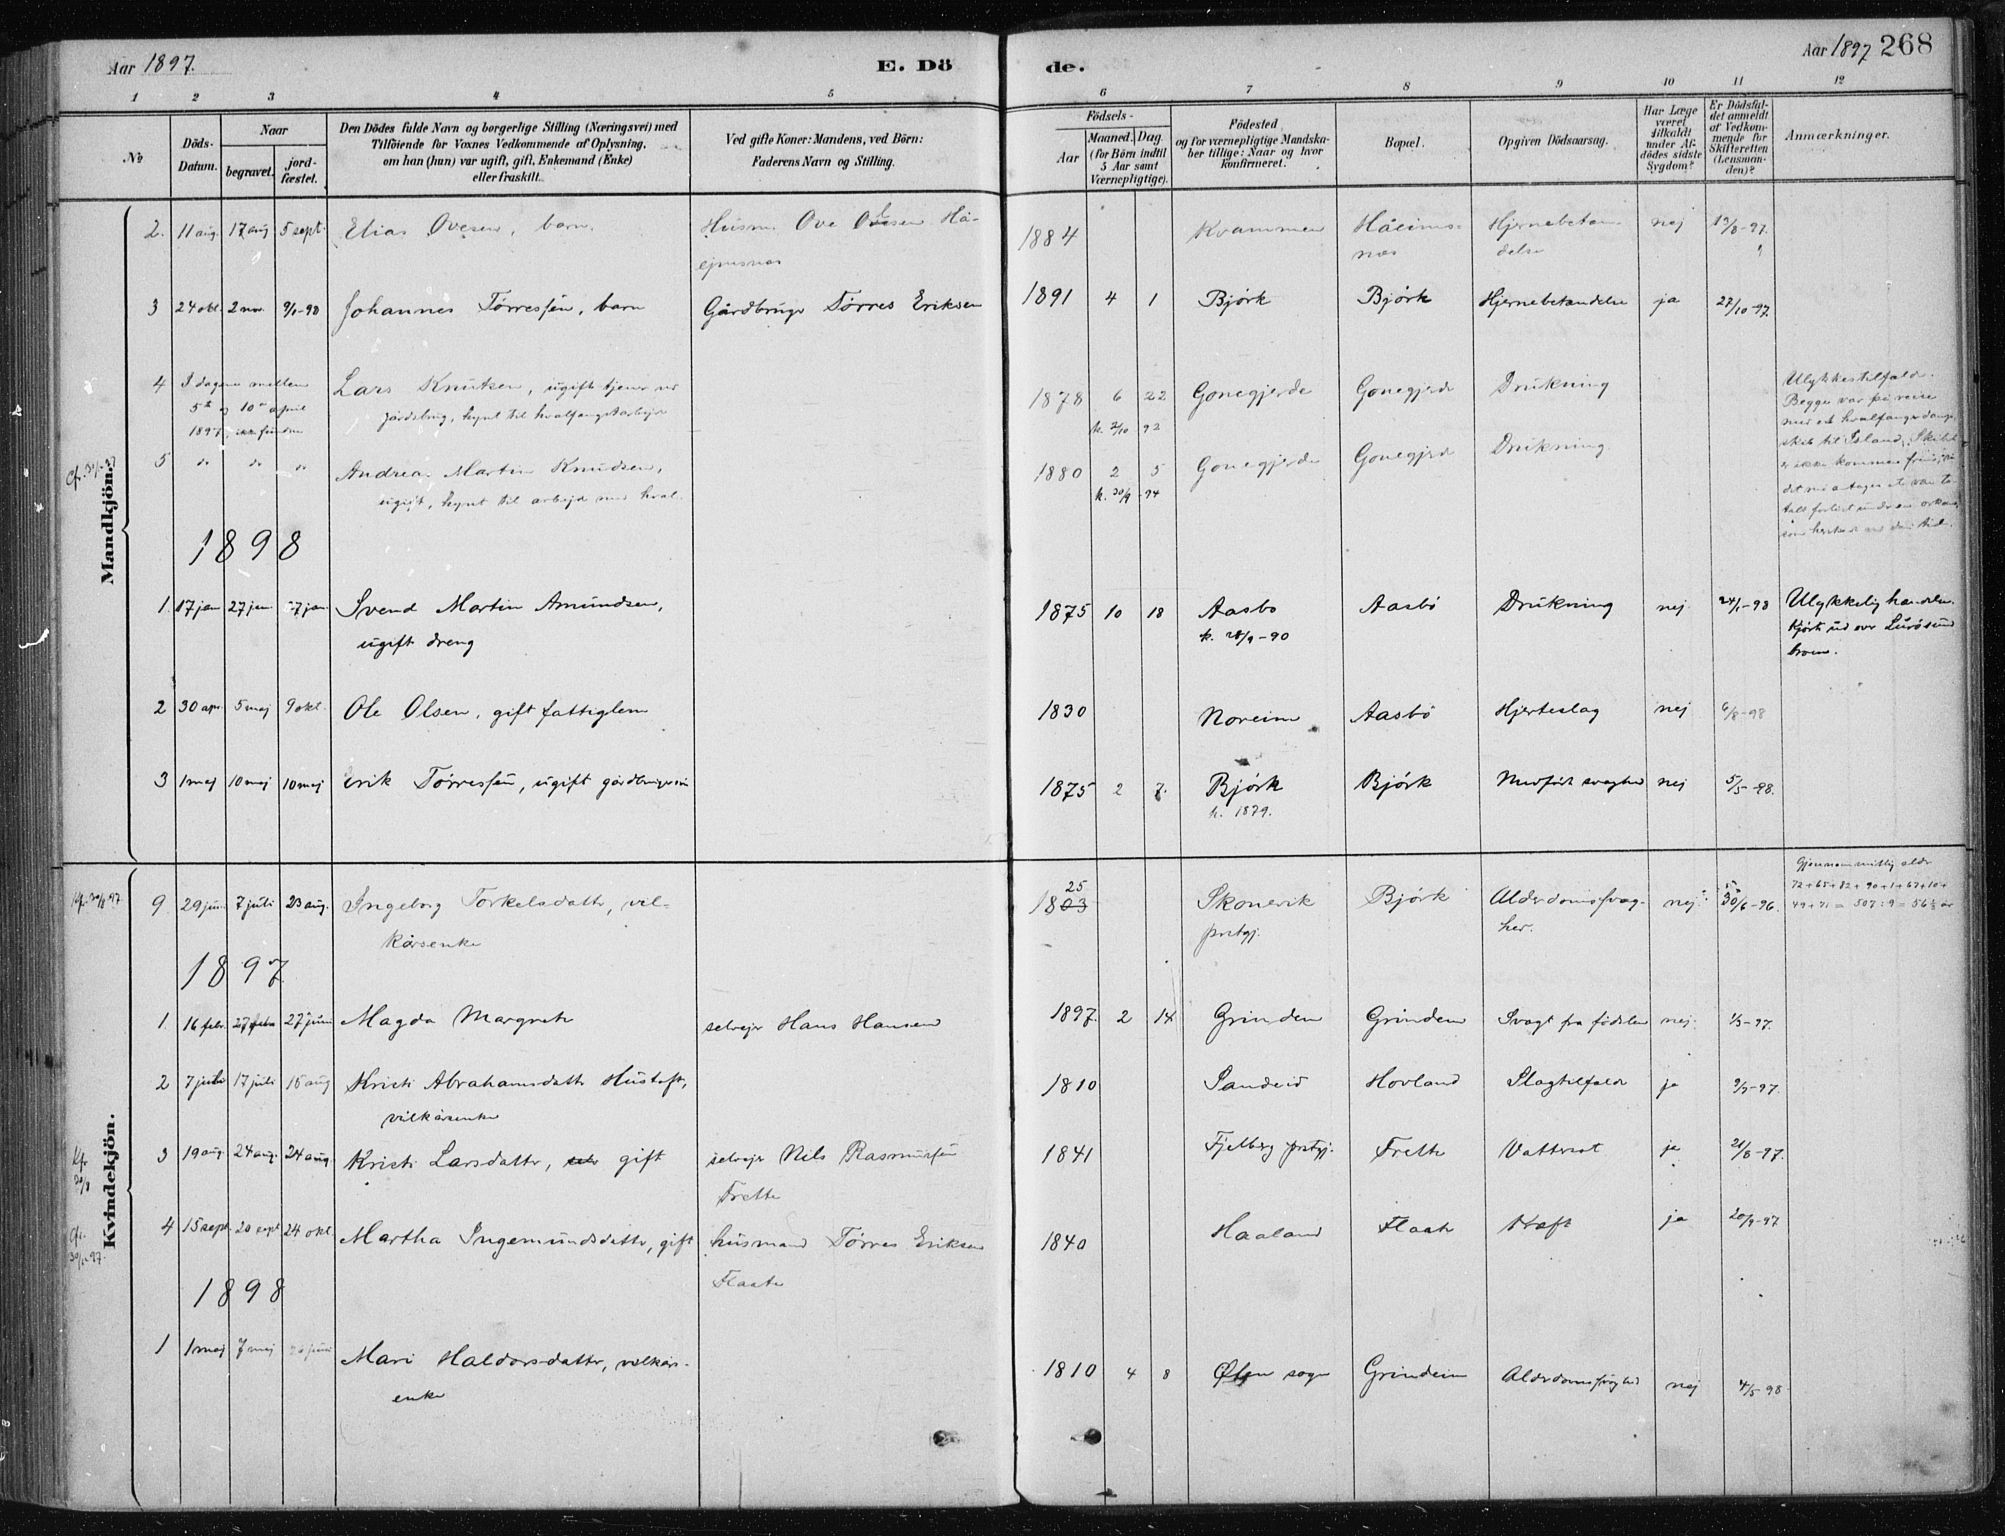 Aar 1897.
E. Dö
de.
Aar 1897 268
1 2 3 4 5 6 7 8 9 10 11 12
No
Döds-Datum.
Naar
begravet.
jord-fæstet.
Den Dödes fulde Navn og borgerlige Stilling (Næringsvei) med
Tilföiende for Voxnes Vedkommende af Oplysning,
om han (hun) var ugift, gift, Enkemand (Enke)
eller fraskilt.
Ved gifte Koner: Mandens, ved Börn:
Faderens Navn og Stilling.
Födsels-
Aar
Maaned.
Dag
(for Börn indtil
5 Aar samt
Værnepligtige).
Födested
og for værnepligtige Mandska-
ber tillige: Naar og hvor
konfirmeret.
Bopæl.
Opgiven Dödsaarsag.
Har Læge
været
tilkaldt
under Af-
dödes sidste
Sygdom?
Er Dödsfal-
det anmeldt
af Vedkom-
mende for
Skifteretten
(Lensman-
den)?
Anmærkninger.
Mandkjön.
2. 11 aug. 17 aug 5 sept. Elias Ovesen, barn. Husm. Ove Olsen Hå- 1884 Kvammen Håeims- Hjernebetæn- nej 13/8-97.
ejmsnæs næs delse
3 24 okt. 2 nov. 9/1-98 Johannes Tørresen, barn Gårdbruger Tørres Eriksen 1891 4 1 Bjørk Bjørk Hjernebetændelse ja 27/10-97.
4 I dagene mellem Lars Knutsen, ugift tjener ved 1878 6 22 Gonegjerde Gonegjerde Drukning Ulykkestilfælde.
5te og 10de april gårdsbrug, hyret til hvalfangstarbejde k. 2/10 92 Begge var på reise
1897, ikke funden med et hvalfangerdamp-
skib til Island. Skibet
5 do do do Andreas Martin Knudsen, 1880 2 5 Gonegjerde Gonegjerde Drukning er ikke kommet frem,
ugift, hyret til arbejde med hval. k. 30/9-94 det må antages at være to-
talt forlist under en orkan,
som herskede ved den tid.
1898
1. 17 jan 27 jan 27 jan Svend Martin Amundsen, 1875 10 18 Aasbo Aasbö Drukning nej 24/1-98 Ulykkelig hændelse.
ugift dreng k. 28/9-90 Kjørte ud over Lurösund
broen.
2 30 apr. 5 maj 9 okt. Ole Olsen, gift fattiglem 1830 Noreim Aasbö Hjerteslag nej 6/8-98
3 1 maj 10 maj 10 maj Erik Tørresen, ugift gårdbrugersøn 1875 2 7. Bjørk Bjørk Medfødt svaghed nej 5/5-98.
k. 1879.
Kvindekjön.
Gjennemsnitlig alder
72+65+82+90+1+67+10+
9. 29 jun. 7 juli 23 aug. Ingeborg Torkelsdatter, vil- 1803 25 Skonevik Bjørk Alderdomssvag- nej 30/6-96. 49+71 = 507:9 = 56 1/3 år
kårsenke prstgj. hed.
1897.
1. 16 febr. 27 febr 27 juni Magda Margrete selvejer Hans Hansen 1897. 2 14 Grinden Grinden Svagt fra fødselen nej. 1/3-97.
2 7 juli 17 juli 15 aug Kristi Abrahamsdatter Hustoft, 1810 Sandeid Hovland Slagtilfælde ja 9/7-97.
vilkårsenke
3 19 aug. 24 aug. 24 aug. Kristi Larsdatter, gift selvejer Nils Rasmussen 1841 Fjelberg prstgj. Frette Vattersot ja 21/8-97.
Frette
4 15 sept. 20 sept 24 okt. Martha Ingemundsdatter, gift husmand Tørres Eriksen 1840 Haaland Flaate Kræft ja 20/9-97
Flaate
1898
1 1 maj 7 maj juni Mari Haldorsdatter, vilkårs- 1810 4 8 Ølen sogn Grindeim Alderdomssvaghed nej 4/5 98
enke